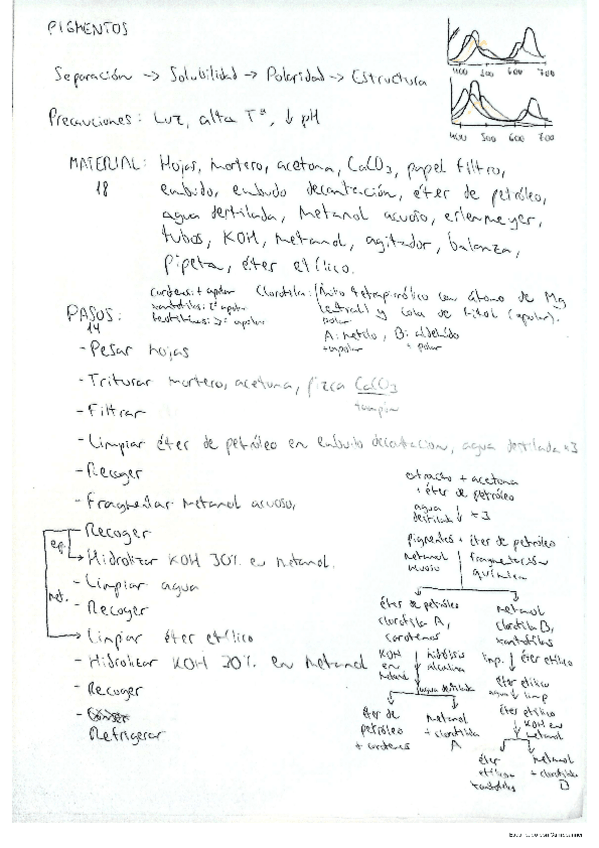 PIGMENTOS
400 500 600 700
400 500 600 700
Separación -> Solubilidad -> Polaridad -> Estructura
Precauciones: Luz, alta Tª, ↓ pH
MATERIAL: Hojas, mortero, acetona, CaCO3, papel filtro,
18 embudo, embudo decantación, éter de petróleo,
agua destilada, Metanol acuoso, erlenmeyer,
tubos, KOH, metanol, agitador, balanza,
pipeta, éter etílico.
carotenos: + apolar Clorofila: tetrapirrólico con átomo de Mg
xantofilas: apolar central y cola de fitol (apolar).
polar
A: metilo, B: aldehído
+ apolar + polar
PASOS:
14
- Pesar hojas
- Triturar mortero, acetona, pizca CaCO3
tampón
- Filtrar
- Limpiar éter de petróleo en embudo decantacion, agua destilada x3
- Recoger
- Fragmentar metanol acuoso,
- Recoger
e.p. -> Hidrolizar KOH 30% en metanol.
- Limpiar agua
met. - Recoger
-> Limpiar éter etílico
- Hidrolizar KOH 30% en metanol
- Recoger
- Refrigerar
extracto + acetona
+ éter de petróleo
agua
destilada ↓ x3
pigmentos + éter de petróleo
metanol acuoso fragmentación química
éter de petróleo
clorofila A,
carotenos
metanol
clorofila B,
xantofilas
KOH en metanol hidrólisis alcalina
agua destilada
limp. ↓ éter etílico
éter etílico
agua ↓ limp
éter etílico
↓ KOH en metanol
éter de
petróleo
+ carotenos
metanol
+ clorofila
A
éter
etílico
xantofilas
metanol
+ clorofila
B